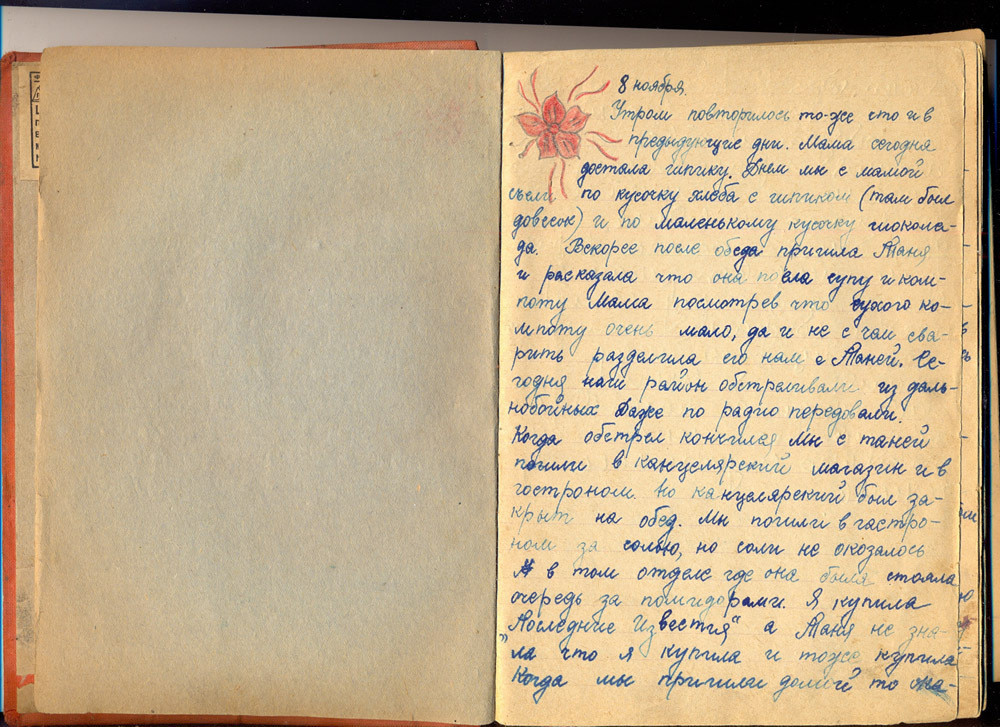 8 ноября.
Утром повторилось то-же что и в
предыдующие дни. Мама сегодня
достала шпику. Днем мы с мамой
съели по кусочку хлеба с шпиком (там был
довесок) и по маленькому кусочку шокола-
да. Вскорее после обеда пришла Таня
и расказала что она поела супу и ком-
поту Мама посмотрев что сухого ко-
мпоту очень мало, да и не с чем сва-
рить разделила его нам с Таней. Се-
годня наш район обстреливали из даль-
нобойных Даже по радио передовали.
Когда обстрел кончился Мы с таней
пошли в канцелярский магазин и в
гостроном. Но канцелярский был за-
крыт на обед. Мы пошли в гастро-
ном за солью, но соли не оказалось
в том отделе где она была стояла
очередь за помидорами. Я купила
„Последние Известия“ а Таня не зна-
ла что я купила и тоже купила
Когда мы пришли домой то ма-